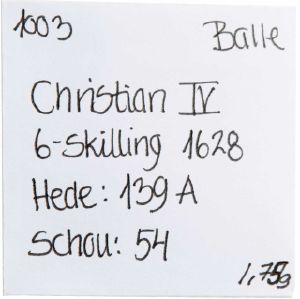 1003 Balle
Christian IV
6-Skilling 1628
Hede: 139 A
Schou: 54